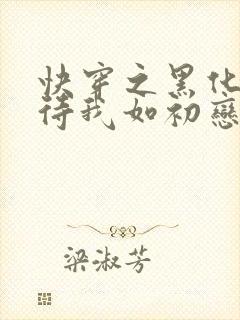 快穿之黑化
待我如初戀
梁淑芳